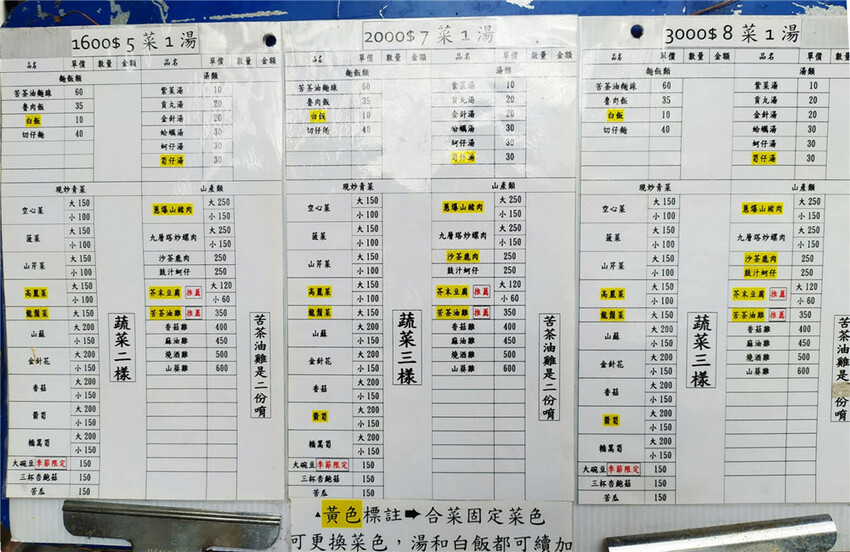 1600$ 5 菜 1 湯
品名 單價 數量 金額 品名 單價 數量 金額
麵飯類 湯類
苦茶油麵線 60 紫菜湯 10
魯肉飯 35 貢丸湯 20
白飯 10 金針湯 20
切仔麵 40 蛤蠣湯 30
蚵仔湯 30
筍仔湯 30
現炒青菜 山產類
空心菜 大 150 小 100 蔥爆山豬肉 大 250 小 150
菠菜 大 150 小 100 九層塔炒螺肉 大 250 小 150
山芹菜 大 150 小 100 沙茶鹿肉 250
豉汁蚵仔 250
高麗菜 大 150 小 100 芥末豆腐 推薦 大 120 小 60
龍鬚菜 大 150 小 100 苦茶油雞 推薦 350
山蘇 大 200 小 150 香菇雞 400
麻油雞 450
金針花 大 200 小 150 燒酒雞 500
山葵雞 600
香菇 大 200 小 150
箭筍 大 200 小 150
轎篙筍 大 200 小 150
大碗豆 季節限定 150
三杯杏鮑菇 150
苦瓜 150
蔬菜二樣
苦茶油雞是二份唷
2000$ 7 菜 1 湯
品名 單價 數量 金額 品名 單價 數量 金額
麵飯類 湯類
苦茶油麵線 60 紫菜湯 10
魯肉飯 35 貢丸湯 20
白飯 10 金針湯 20
切仔麵 40 蛤蠣湯 30
蚵仔湯 30
筍仔湯 30
現炒青菜 山產類
空心菜 大 150 小 100 蔥爆山豬肉 大 250 小 150
菠菜 大 150 小 100 九層塔炒螺肉 大 250 小 150
山芹菜 大 150 小 100 沙茶鹿肉 250
豉汁蚵仔 250
高麗菜 大 150 小 100 芥末豆腐 推薦 大 120 小 60
龍鬚菜 大 150 小 100 苦茶油雞 推薦 350
山蘇 大 200 小 150 香菇雞 400
麻油雞 450
金針花 大 200 小 150 燒酒雞 500
山葵雞 600
香菇 大 200 小 150
箭筍 大 200 小 150
轎篙筍 大 200 小 150
大碗豆 季節限定 150
三杯杏鮑菇 150
苦瓜 150
蔬菜三樣
苦茶油雞是二份唷
3000$ 8 菜 1 湯
品名 單價 數量 金額 品名 單價 數量 金額
麵飯類 湯類
苦茶油麵線 60 紫菜湯 10
魯肉飯 35 貢丸湯 20
白飯 10 金針湯 20
切仔麵 40 蛤蠣湯 30
蚵仔湯 30
筍仔湯 30
現炒青菜 山產類
空心菜 大 150 小 100 蔥爆山豬肉 大 250 小 150
菠菜 大 150 小 100 九層塔炒螺肉 大 250 小 150
山芹菜 大 150 小 100 沙茶鹿肉 250
豉汁蚵仔 250
高麗菜 大 150 小 100 芥末豆腐 推薦 大 120 小 60
龍鬚菜 大 150 小 100 苦茶油雞 推薦 350
山蘇 大 200 小 150 香菇雞 400
麻油雞 450
金針花 大 200 小 150 燒酒雞 500
山葵雞 600
香菇 大 200 小 150
箭筍 大 200 小 150
轎篙筍 大 200 小 150
大碗豆 季節限定 150
三杯杏鮑菇 150
苦瓜 150
蔬菜三樣
苦茶油雞是 份唷
▲黃色標註➡合菜固定菜色
可更換菜色，湯和白飯都可續加